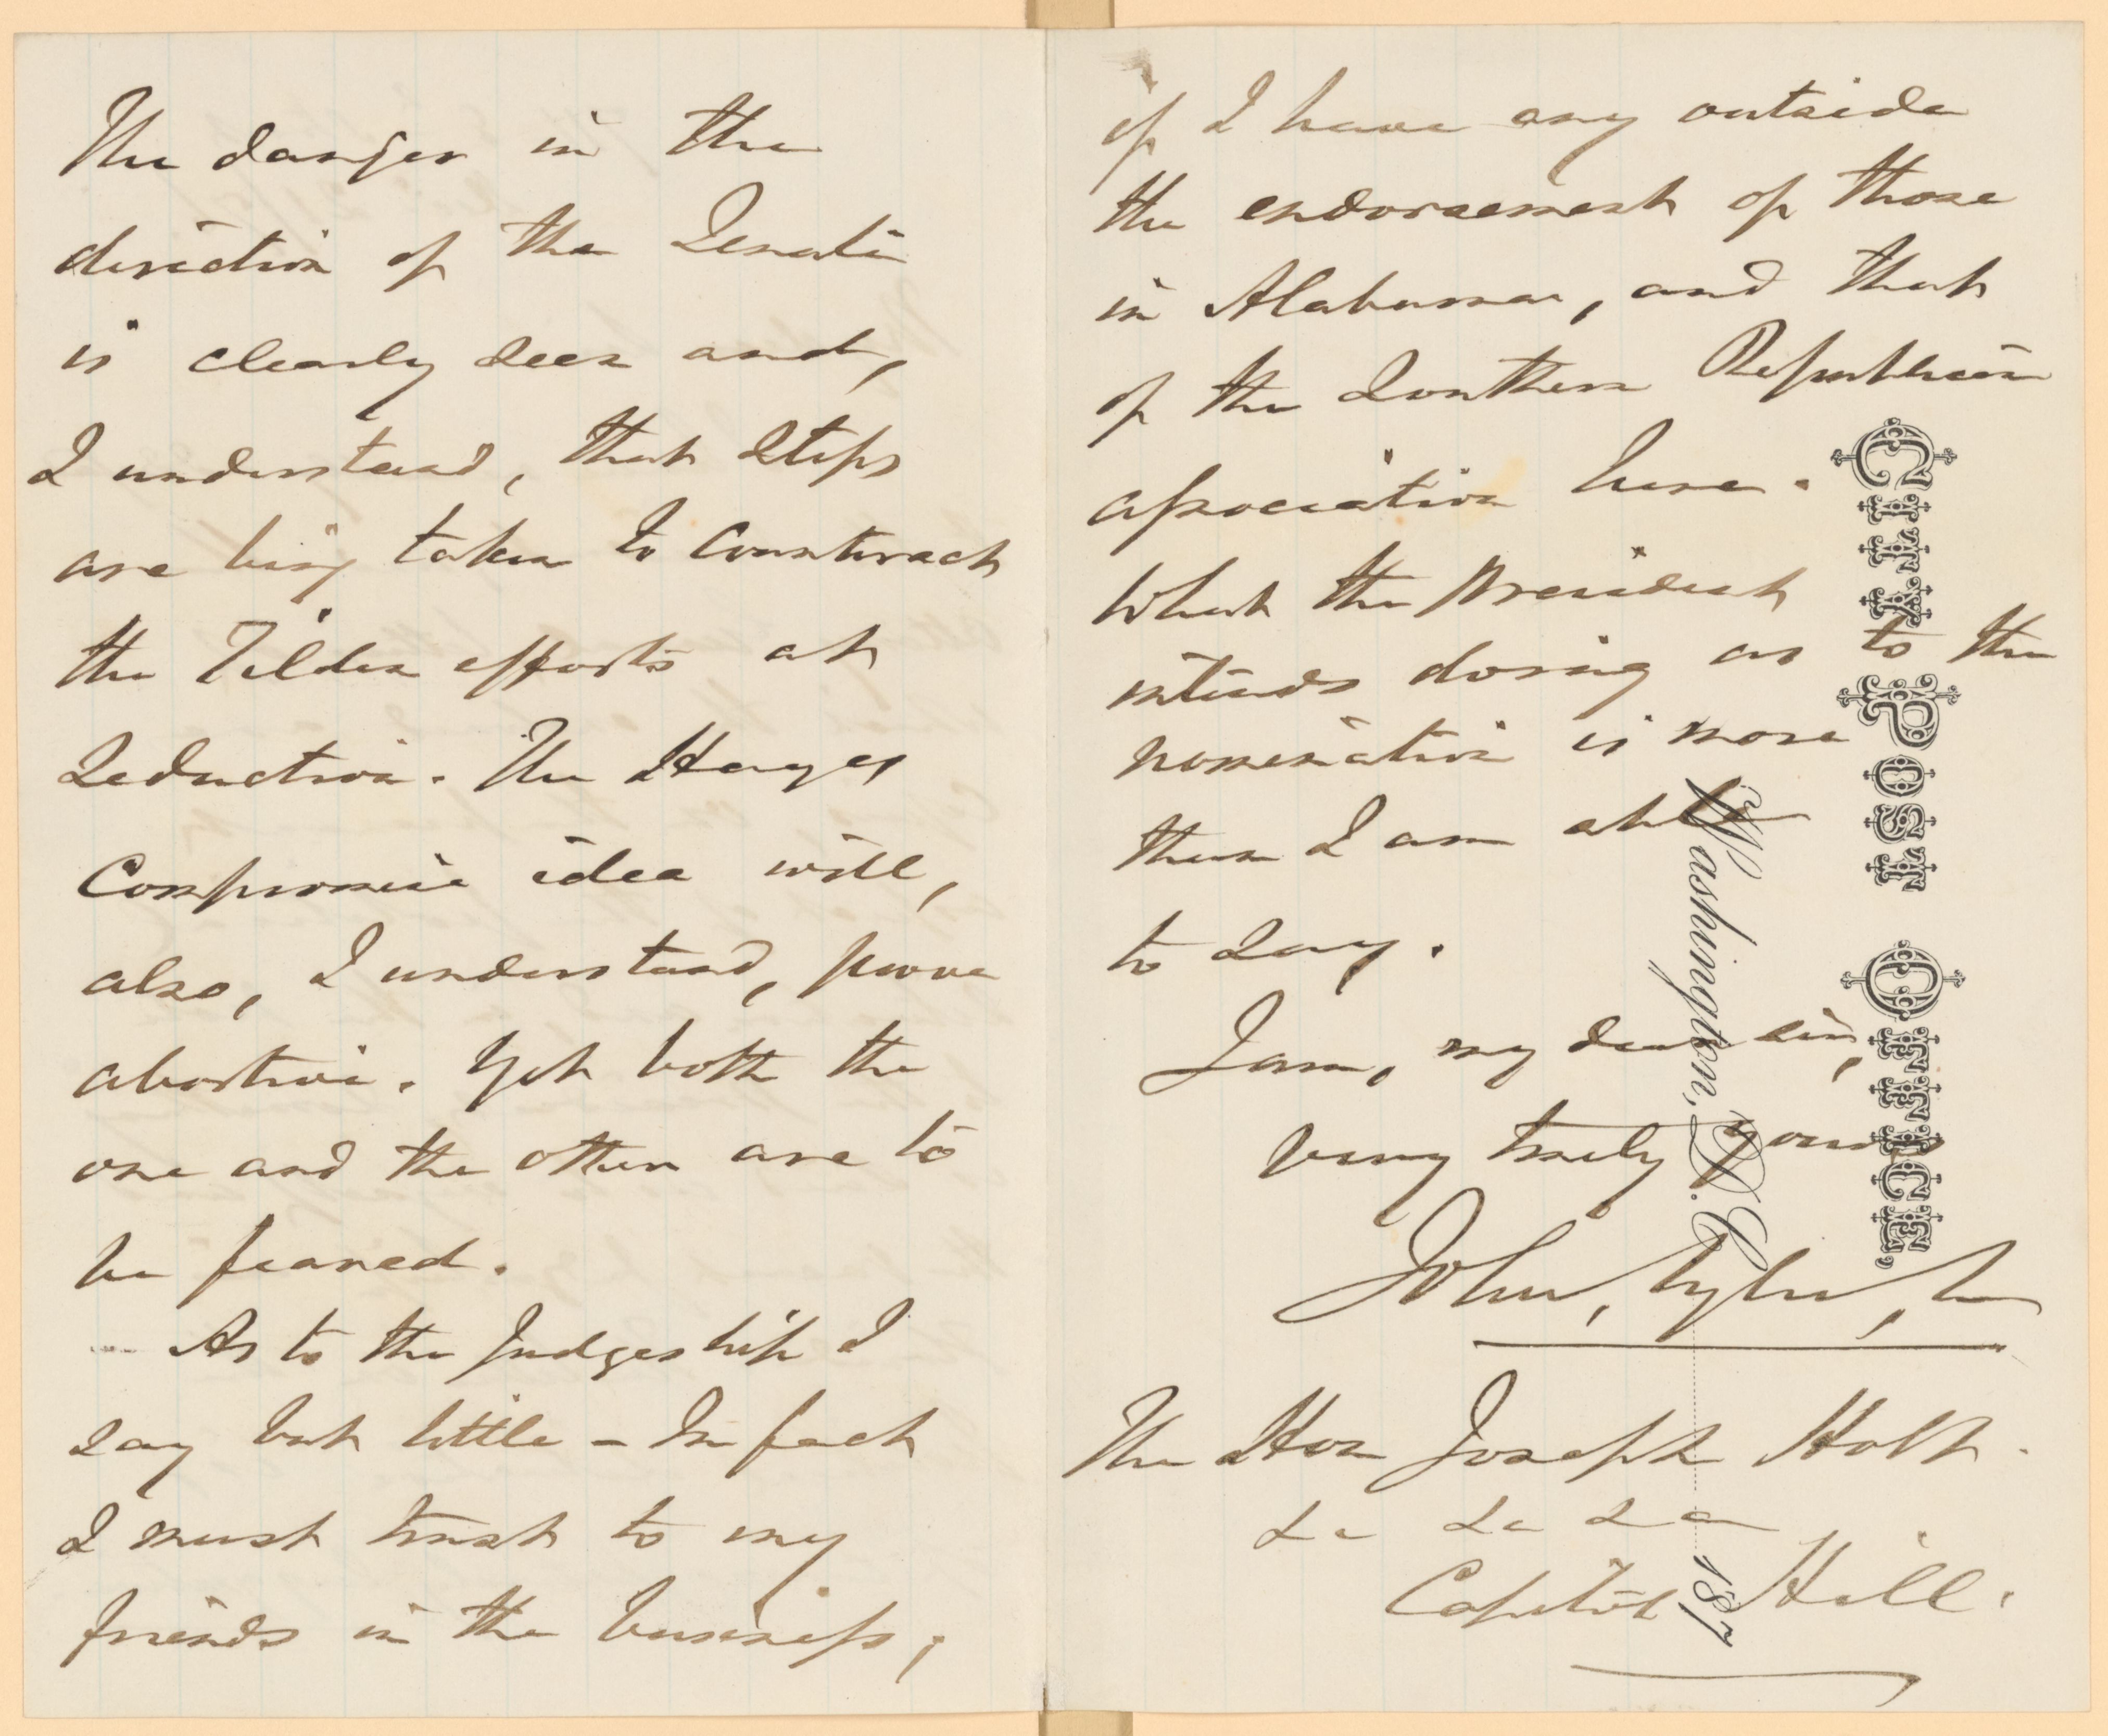 The danger in the
direction of the Senate
is clearly seen and,
I understand, that steps
are being taken to counteract
the Tilden efforts at
Seduction. The Hayes
Compromise idea will,
also, I understand, prove
abortive. Yet both the
one and the other are to
be feared.
As to the Judgeship I
say but little – In fact
I must trust to my
friends in the business;
if I have any outside
the endorsement of those
in Alabama, and that
of the Southern Republican
association here.
What the President
intends doing as to the
nomination is more
than I am able
to say.
I am, my dear sir,
Very truly yours
John, Tyler, Jr
The Hon Joseph Holt.
Capitol Hill.
CITY POST OFFICE,
Washington, D. C.
187